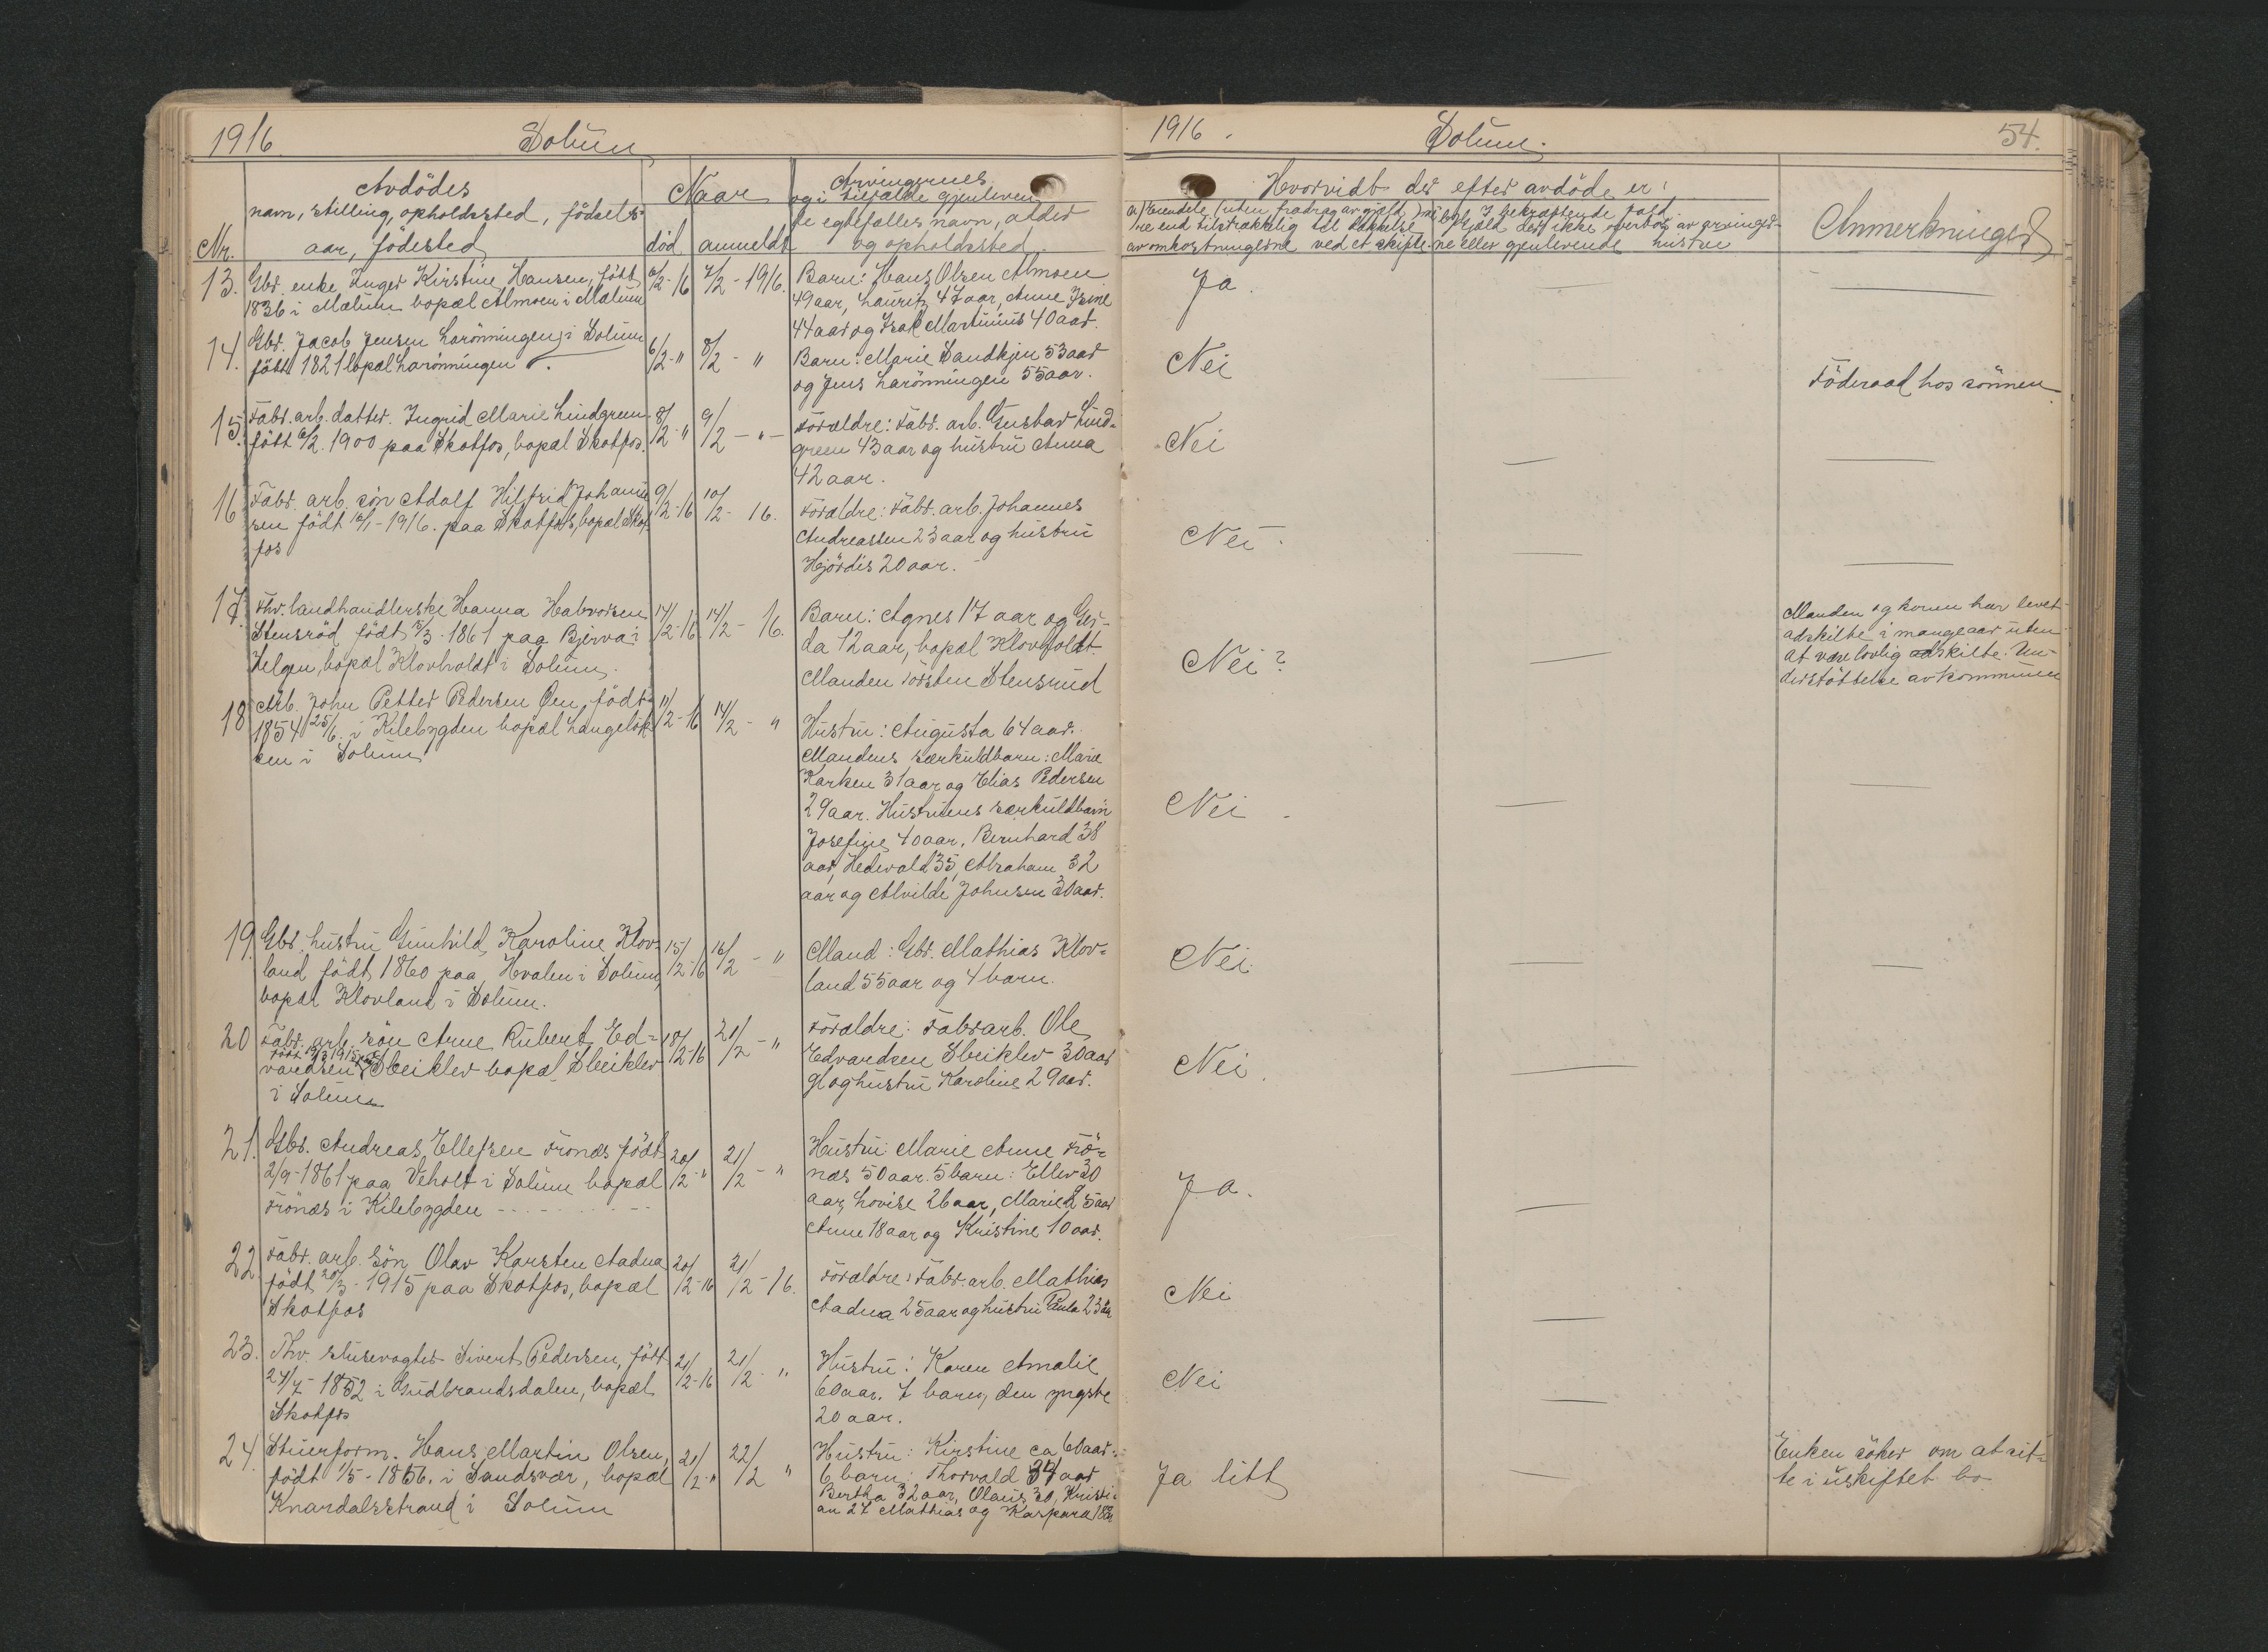 1916 Solum
Avdödes
navn, stilling, opholdssted, födsels-
Nr. aar, födested
Naar
död anmeldt
Arvingernes
og i tilfælde gjenleven
de egtefælles navn, alder
og opholdssted
13. Gbr. enke Inger Kirstine Hansen, född
1836 i Mælum bopæl Almoen i Mælum
6/2-16 7/2-1916.
Barn: Hans Olsen Almoen
49 aar, Lauritz 47 aar, Anne
44 aar og Isak Martinius 40 aar.
14. Gbr. Jacob Jensen Larönningen i Solum
född 1821 bopæl Larönningen
6/2-" 8/2-"
Barn: Marie Sandkjen 53 aar
og Jens Larönningen 55 aar.
15. Fabr. arb. datter. Ingrid Marie Lindgreen
född 6/2. 1900 paa Skotfos, bopæl Skotfos.
8/2-" 9/2-"-
Forældre: Fabr. arb. Gustav Lind-
green 43 aar og hustru Anna
42 aar.
16 Fabr. arb. sön Adolf Hilfrid Johann
sen född 16/1-1916. paa Skotfos, bopæl Skot
fos
9/2-16 10/2-16.
Forældre: Fabr. arb. Johannes
Andreassen 23 aar og hustru
Hjördis 20 aar.
17. Fhv. landhandlerske Hanna Halvorsen
Stensröd född 5/3-1861 paa Bjerva i
Helgen, bopæl Klovholdt i Solum.
14/2-16 14/2-16.
Barn: Agnes 17 aar og Ger-
da 12 aar, bopæl Klovholdt.
Manden Torsten Stensrud
18 Arb. John Petter Pedersen Öen, född
1854 25/6. i Kilebygden bopæl Langelök
ken i Solum
11/2-16 14/2-"
Hustru: Augusta 64 aar.
Mandens særkuldbarn: Marie
Karken 31 aar og Elias Pedersen
29 aar. Hustruens særkuldbarn
Josefine 40 aar, Bernhard 38
aar, Hedevald 35, Abraham 32
aar og Alvilde Johnsen 30 aar.
19. Gbr. hustru Gunhild Karoline Klov-
land född 1860 paa Hvalen i Solum,
bopæl Klovland i Solum.
15/2-16 16/2-"
Mand: Gbr. Mathias Klov-
land 55 aar og 4 barn.
20 Fabr. arb. sön Arne Rubert Ed-
vardsen Steiklev bopæl Steiklev
i Solum
18/2-16 21/2-"
Forældre: Fabr arb. Ole
Edvardsen Steiklev 30 aar
og hustru Karoline 29 aar.
21. Gbr. Andreas Ellefsen Frönæs född
2/9-1861 paa Veholt i Solum bopæl
Frönæs i Kilebygden
20/2-" 21/2-"
Hustru: Marie Anne Frö-
næs 50 aar. 5 barn: Ellev 30
aar, Lovise 26 aar, Marie 25 aar
Anne 18 aar og Kristine 10 aar.
22. Fabr. arb. Sön Olav Karsten Aadna
född 20/3-1915 paa Skotfos, bopæl
Skotfos
20/2-16 21/2-16.
Forældre: Fabr. arb. Mathias
Aadna 25 aar og hustru Paula 23 aar
23. Fhv. slusevogter Sivert Pedersen, född
27/7-1852 i Gudbrandsdalen, bopæl
Skotfos
21/2-16 21/2-"
Hustru: Karen Amalie
60 aar. 7 barn, den yngste
20 aar.
24. Stuerform. Hans Martin Olsen,
född 1/5-1856. i Sandsvær, bopæl
Knardalsstrand i Solum
21/2-" 22/2 "
Hustru: Kirstine ca 60 aar.
6 barn: Thorvald 34 aar
Bertha 32 aar, Olaus 30, Kristi-
an 27 Mathias og Kaspara 18 aar
1916. Solum. 54.
Hvorvidt der efter avdöde er:
a) Eiendele (uten fradrag av gjæld)
re end tilstrækkelig til dækkelse
av omkostningerne ved et skifte
b) I bekræftende fald
gjæld der ikke overtog av arvinger-
ne eller gjenlevende hustru
Anmerkninger
Ja.
Nei
Föderaad hos sönnen.
Nei
Nei.
Nei?
Manden og konen har levet
adskilte i mange aar uten
at være lovlig adskilte. Un-
derstöttelse av kommunen
Nei
Nei.
Nei.
Ja.
Nei
Nei
Ja litt
Enken söker om at sit-
te i uskiftet bo